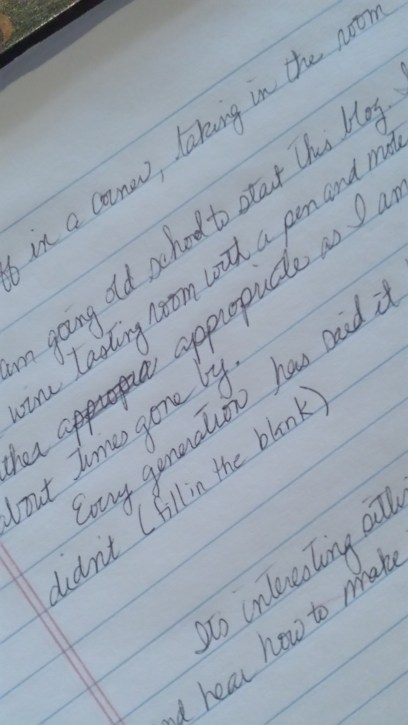 in a corner, taking in the room
am going old school to start this blog.
wine tasting room with a pen and
appropriate as I am
about times gone by.
Every generation has said it
didn't (fill in the blank)
Its interesting
hear how to make